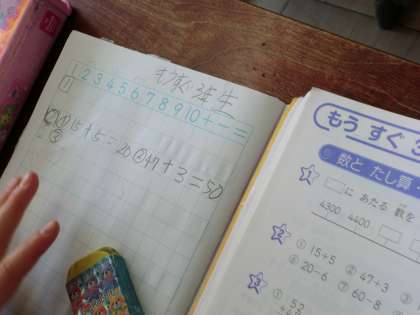 もうすぐ3年生
1 2 3 4 5 6 7 8 9 10 + − =
1
① 15+5=20 ② 47+3=50
③
もう すぐ 3
数と たし算
1 □に あたる 数を
4300 4400
2 ① 15+5 ② 47+3
④ 20-6 ⑦ 60-8
3 ① 52